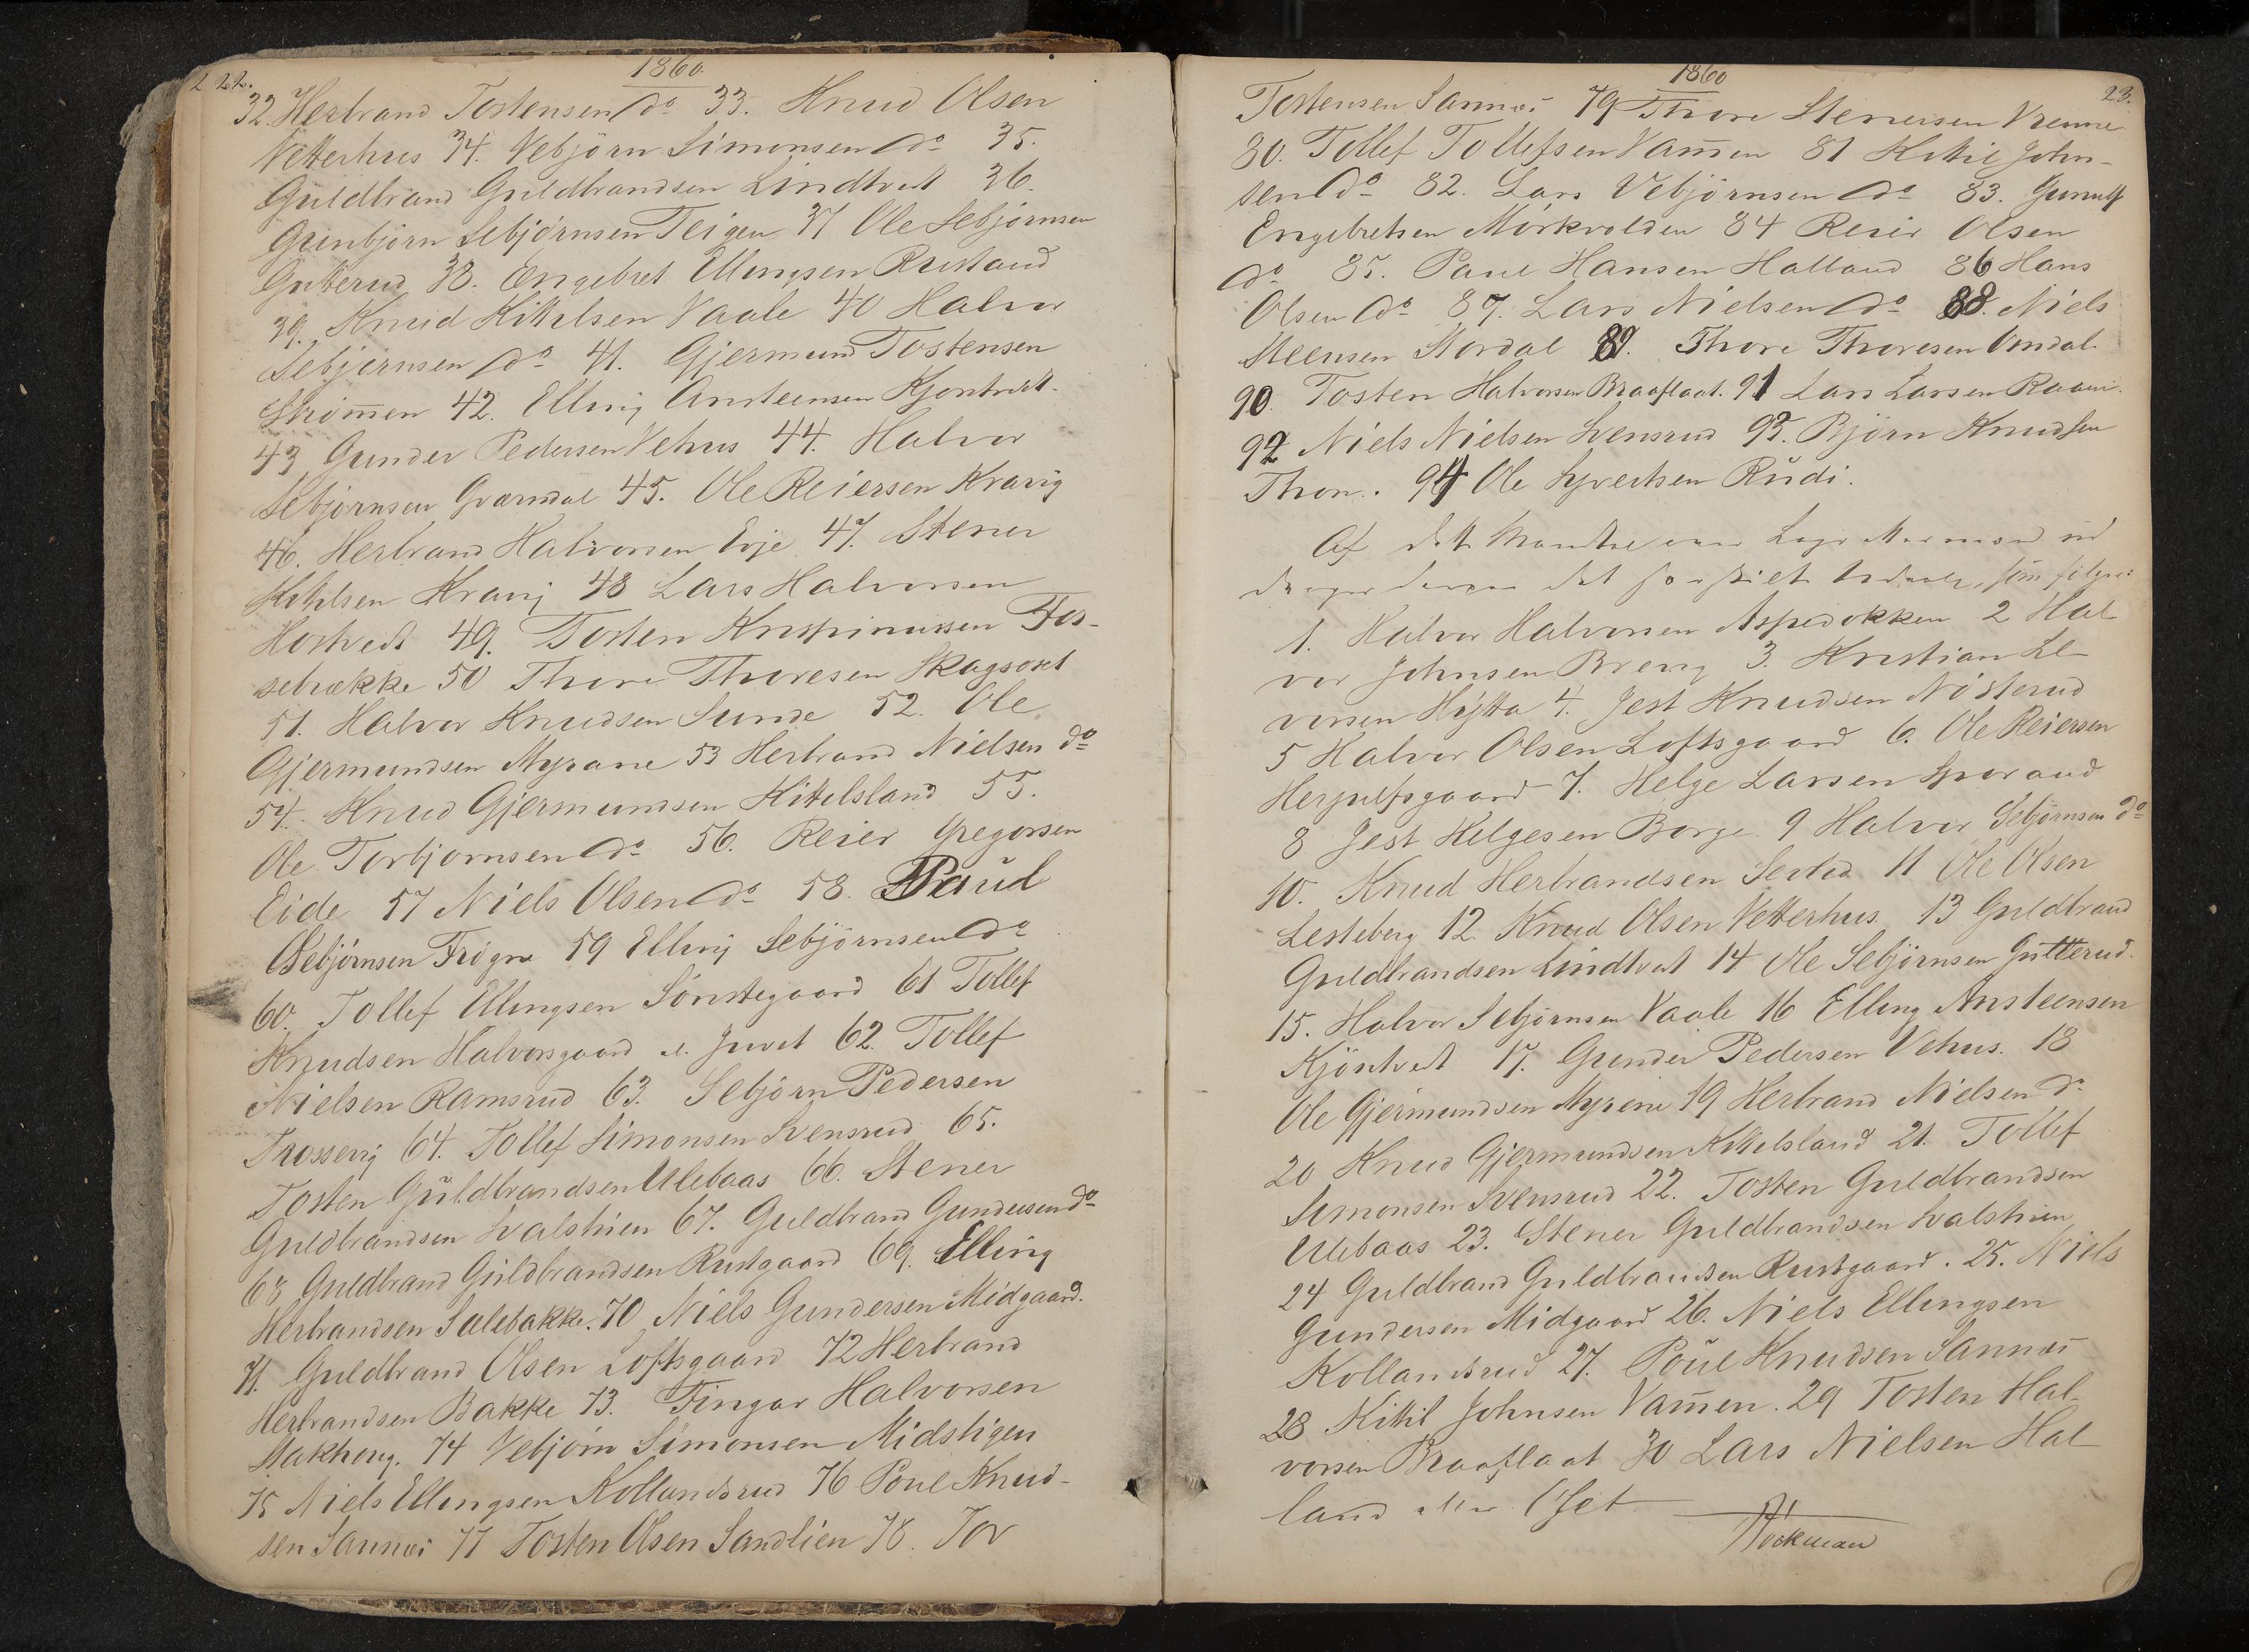 22.
1860.
32. Herbrand Tostensen do 33. Knud Olsen
Vetterhus 34. Vebjörn Simonsen do 35.
Guldbrand Guldbrandsen Lindtvet 36.
Gunbjörn Sebjörnsen Teigen 37 Ole Sebjörnsen
Gutterud 38. Engebret Ellingsen Rustand
39. Knud Kittelsen Vaale 40 Halvor
Sebjörnsen do 41. Gjermund Tostensen
Strömen 42. Elling Ansteensen Kjöntvet.
43 Gunder Pedersen Vehus 44. Halvor
Sebjörnsen Gvarndal 45. Ole Reiersen Kravig
46. Herbrand Halvorsen Evje 47. Stener
Kittelsen Kravig 48 Lars Halvorsen
Hostvedt 49. Tosten Krispinussen Fos-
sebrække 50 Thore Thoresen Skagsoset
51. Halvor Knudsen Sunde 52. Ole
Gjermundsen Myrane 53 Herbrand Nielsen do
54. Knud Gjermundsen Kittelsland 55.
Ole Torbjornsen do 56. Reier Gregorsen
Eide 57 Niels Olsen do 58. Paul
Asebjörnsen Frögne 59 Elling Sebjörnsen do
60. Tollef Ellingsen Sönstegaard 61 Tollef
Knudsen Halvorsgaard e. Juvet 62. Tollef
Nielsen Ramsrud 63. Sebjörn Pedersen
Trossvig 64. Tollef Simonsen Svensrud 65.
Tosten Guldbrandsen Ulebaas 66. Stener
Guldbrandsen Svalstuen 67. Guldbrand Gundersen do
68 Guldbrand Guldbrandsen Rustgaard 69. Elling
Herbrandsen Sulebakke. 70 Niels Gundersen Midgaard.
71. Guldbrand Olsen Loftsgaard 72 Herbrand
Herbrandsen Bakke 73. Fingar Halvorsen
Stakhong. 74 Vebjörn Simonsen Midstigen
75 Niels Ellingsen Kollandsrud 76 Poul Knud-
sen Sannæs 77 Tosten Olsen Sandlien 78. Tor
1860
23.
Tostensen Sannæs 79 Thore Stenersen Vrenne
80. Tollef Tollefsen Vamen 81 Kittil John-
sen do 82. Lars Vebjörnsen do 83. Gunulf
Engebretsen Mörkvolden 84 Reier Olsen
do 85. Paul Hansen Halland 86 Hans
Olsen do 87. Lars Nielsen do 88. Niels
Steensen Stordal 89. Thore Thoresen Omdal
90 Tosten Halvorsen Braaflaat. 91 Lars Larsen Raaen.
92 Niels Nielsen Svensrud 93. Björn Knudsen
Thon. 94 Ole Syvertsen Rudi.
Af dette
1. Halvor Halvorsen Aspedokken 2 Hal-
vor Johnsen Breng 3. Kristian Le-
vorsen Hytta 4. Jest Knudsen Nösterud
5 Halvor Olsen Loftsgaard 6. Ole Reiersen
Herjulfsgaard 7. Helge Larsen
8 Jest Helgesen Borge 9 Halvor Sebjörnsen do
10. Knud Herbrandsen 11. Ole Olsen
Lesteberg 12. Knud Olsen Vetterhus. 13 Guldbrand
Guldbrandsen Lindtvet 14 Ole Sebjörnsen Gutterud.
15. Halvor Sebjörnsen Vaale 16 Elling Ansteensen
Kjöntvet 17. Gunder Pedersen Vehus. 18
Ole Gjermundsen Myrene 19 Herbrand Nielsen do
20 Knud Gjermundsen Kittelsland 21. Tollef
Simonsen Svensrud 22. Tosten Guldbrandsen
Ulebaas 23. Stener Guldbrandsen Svalstuen
24 Guldbrand Guldbrandsen Rustgaard. 25. Niels
Gundersen Midgaard 26. Niels Ellingsen
Kollandsrud 27. Poul Knudsen Sannæs
28 Kittil Johnsen Vamen. 29 Tosten Hal-
vorsen Braaflaat 30 Lars Nielsen Hal-
land